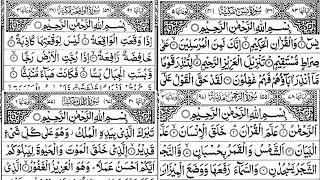 بِسْمِ اللهِ الرَّحْمٰنِ الرَّحِيْمِ
يٰسٓ ۝ وَالْقُرْاٰنِ الْحَكِيْمِ ۝ اِنَّكَ لَمِنَ الْمُرْسَلِيْنَ ۝ عَلٰى
صِرَاطٍ مُّسْتَقِيْمٍ ۝ تَنْزِيْلَ الْعَزِيْزِ الرَّحِيْمِ ۝ لِتُنْذِرَ قَوْمًا
مَّآ اُنْذِرَ اٰبَآؤُهُمْ فَهُمْ غٰفِلُوْنَ ۝ لَقَدْ حَقَّ الْقَوْلُ عَلٰٓى
بِسْمِ اللهِ الرَّحْمٰنِ الرَّحِيْمِ
اِذَا وَقَعَتِ الْوَاقِعَةُ ۝ لَيْسَ لِوَقْعَتِهَا كَاذِبَةٌ ۝
خَافِضَةٌ رَّافِعَةٌ ۝ اِذَا رُجَّتِ الْاَرْضُ رَجًّا ۝
وَّبُسَّتِ الْجِبَالُ بَسًّا ۝ فَكَانَتْ هَبَآءً مُّنْۢبَثًّا ۝
سُوْرَةُ الرَّحْمٰنِ
بِسْمِ اللهِ الرَّحْمٰنِ الرَّحِيْمِ
اَلرَّحْمٰنُ ۝ عَلَّمَ الْقُرْاٰنَ ۝ خَلَقَ الْاِنْسَانَ ۝ عَلَّمَهُ
الْبَيَانَ ۝ اَلشَّمْسُ وَالْقَمَرُ بِحُسْبَانٍ ۝ وَّالنَّجْمُ وَ
الشَّجَرُ يَسْجُدٰنِ ۝ وَالسَّمَآءَ رَفَعَهَا وَوَضَعَ الْمِيْزَانَ ۝
بِسْمِ اللهِ الرَّحْمٰنِ الرَّحِيْمِ
تَبٰرَكَ الَّذِيْ بِيَدِهِ الْمُلْكُ وَهُوَ عَلٰى كُلِّ شَيْءٍ
قَدِيْرُ ۝ الَّذِيْ خَلَقَ الْمَوْتَ وَالْحَيٰوةَ لِيَبْلُوَكُمْ
اَيُّكُمْ اَحْسَنُ عَمَلًا وَهُوَ الْعَزِيْزُ الْغَفُوْرُ ۝ الَّذِيْ